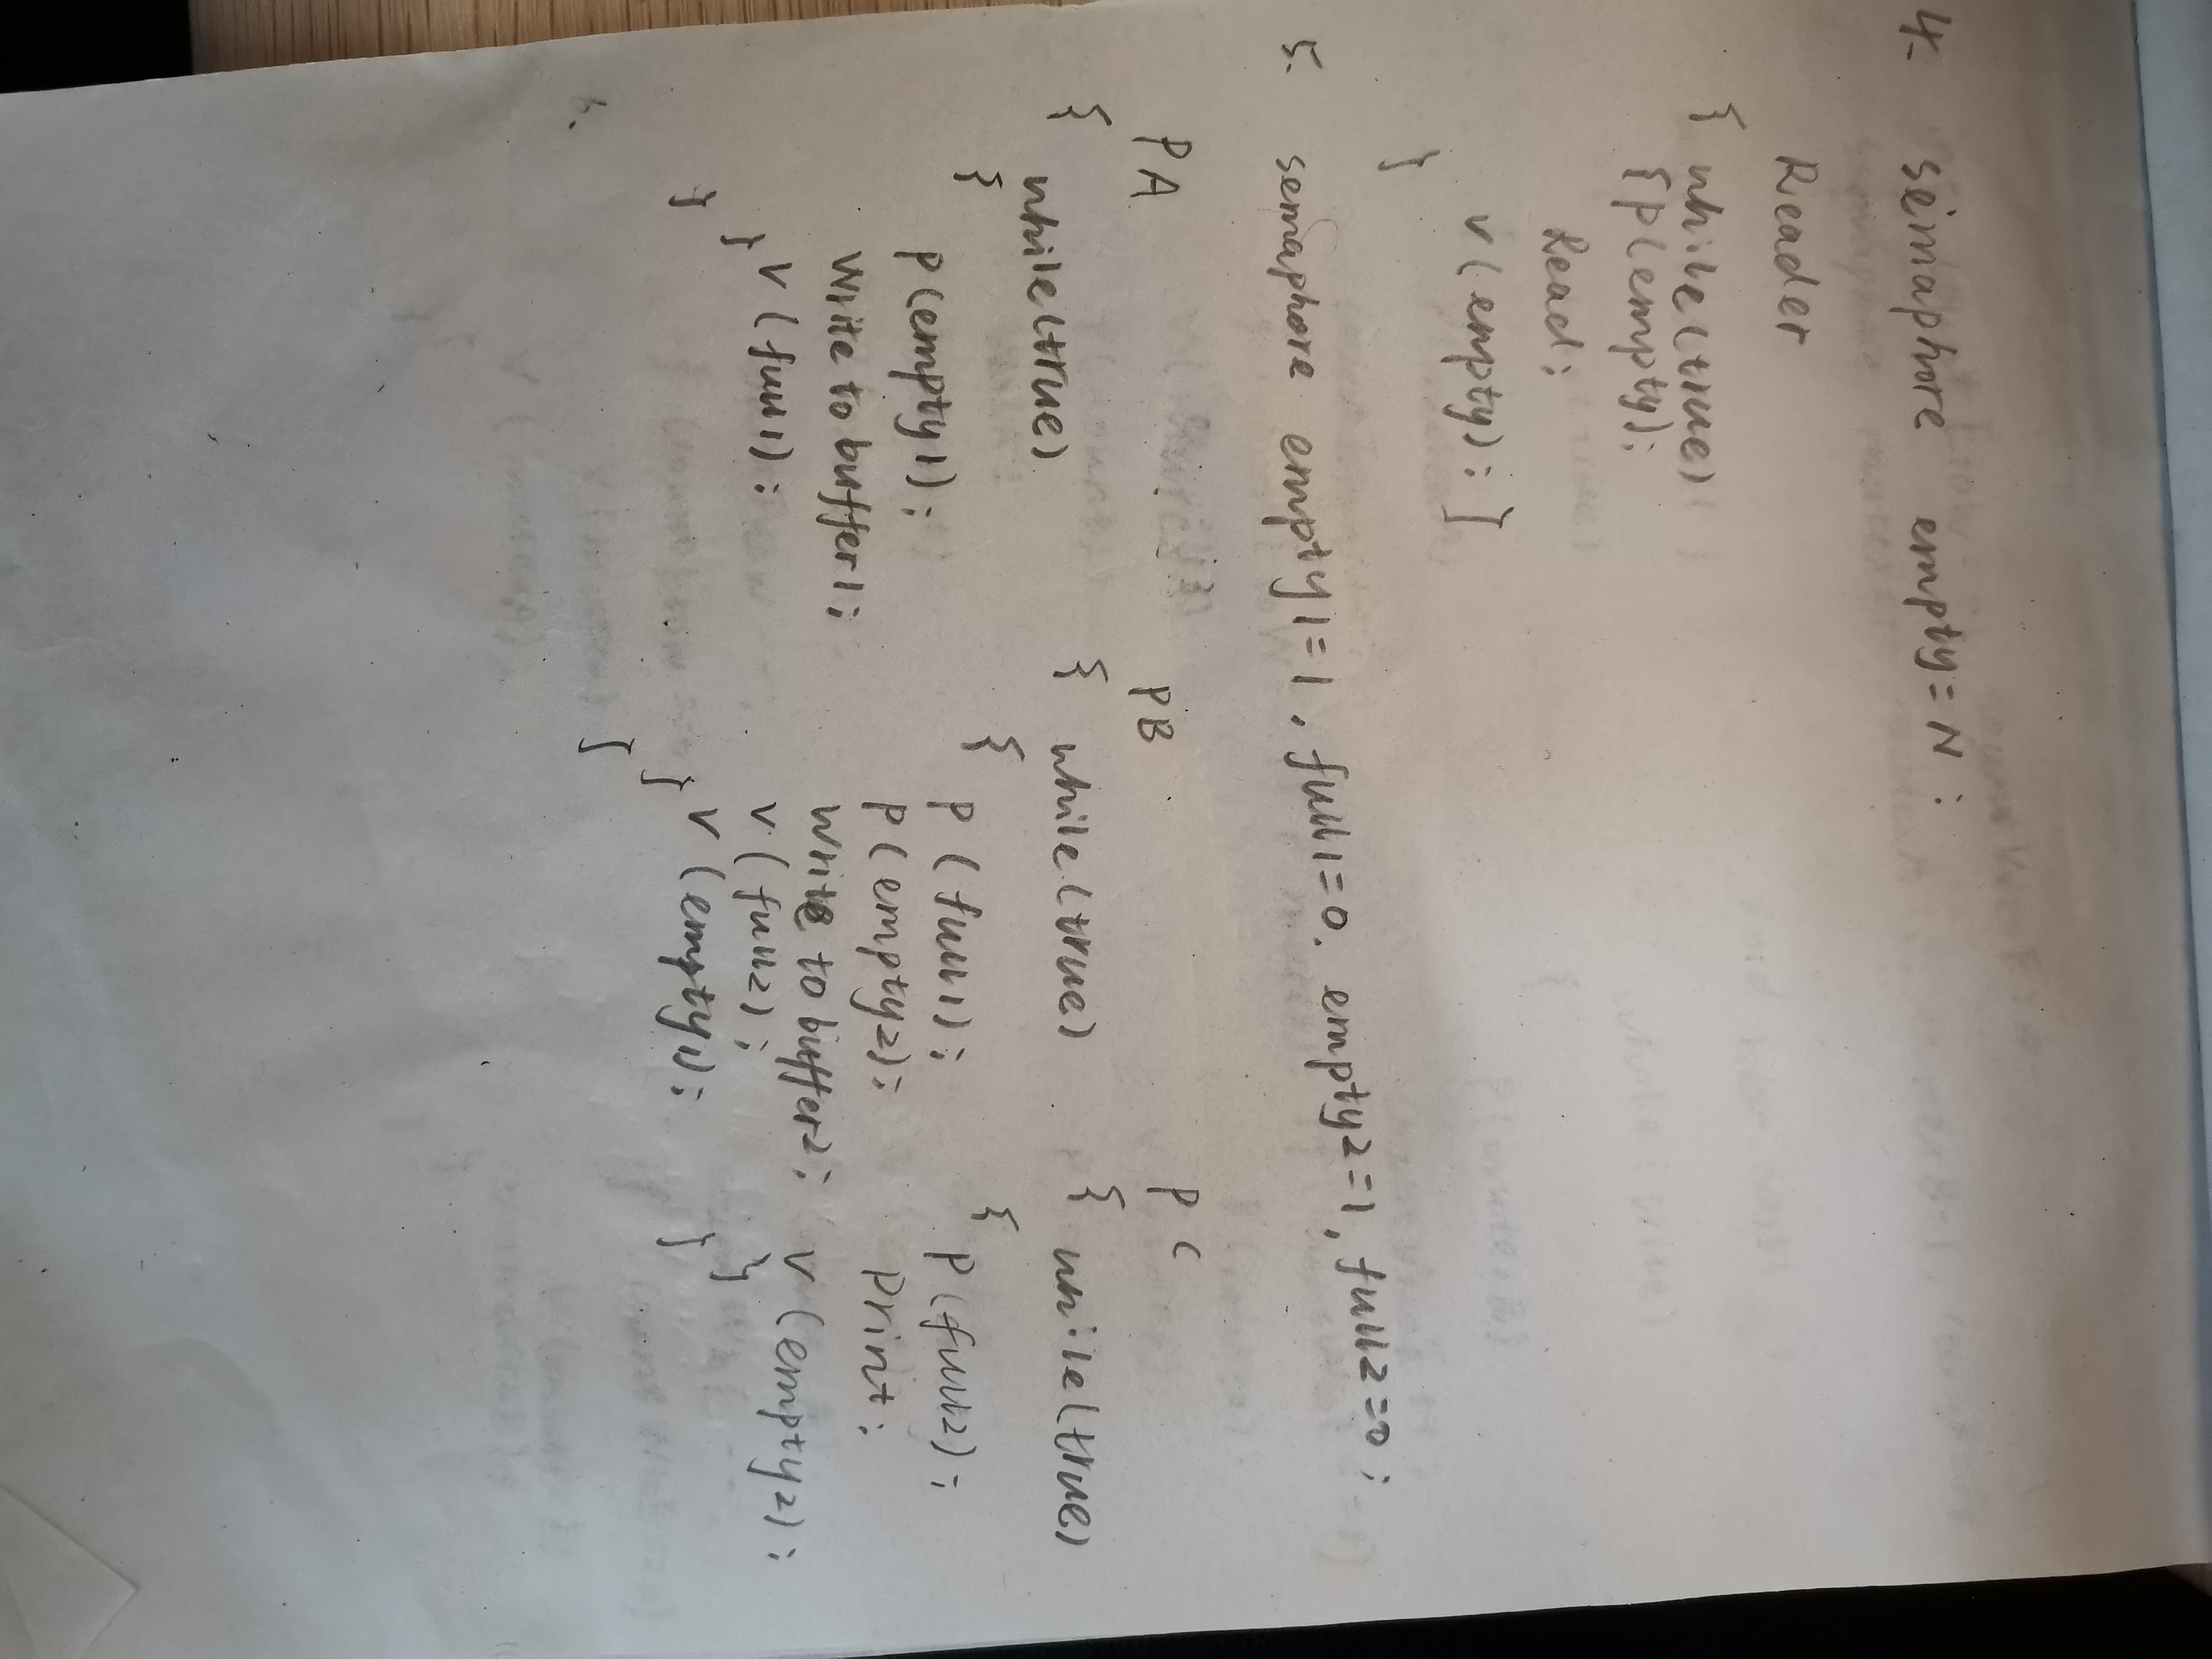 4. semaphore empty=N:
Reader
{ while(true)
{p(empty);
Read;
v(empty); }
}
5. semaphore empty1=1, full1=0, empty2=1, full2=0;
PA
{
while(true)
{
p(empty1);
Write to buffer1;
} V(full1);
}
PB
{ while(true)
{
P(full1);
P(empty2);
Write to buffer2;
V(full2);
} V(empty1);
}
PC
{ while(true)
{
P(full2);
Print;
V(empty2);
}
}
6.